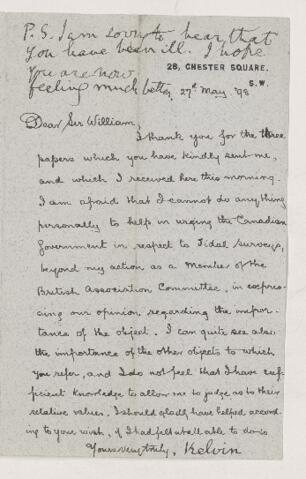 P.S. I am sorry to hear that
you have been ill. I hope
you are now
feeling much better,
28, CHESTER SQUARE.
S.W.
27th May '98
Dear Sir William,
I thank you for the three
papers which you have kindly sent me,
and which I received here this morning.
I am afraid that I cannot do anything
personally to help in urging the Canadian
Government in respect to Tidal Surveys,
beyond my action as a Member of the
British Association Committee, in expres-
sing our opinion regarding the impor-
tance of the object. I can quite see also
the importance of the other objects to which
you refer, and I do not feel that I have suf-
ficient knowledge to allow me to judge as to their
relative values. I should gladly have helped accord-
ing to your wish, if I had felt at all able to do so
Yours very truly, Kelvin